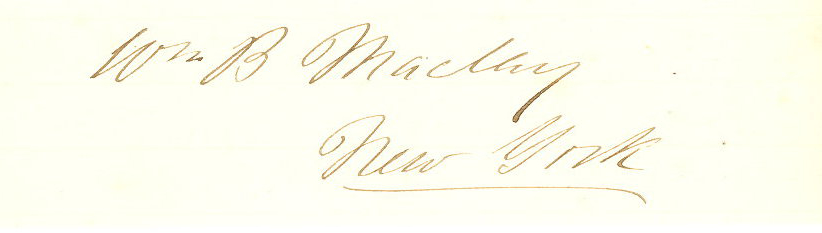 Wm B Maclay
New York